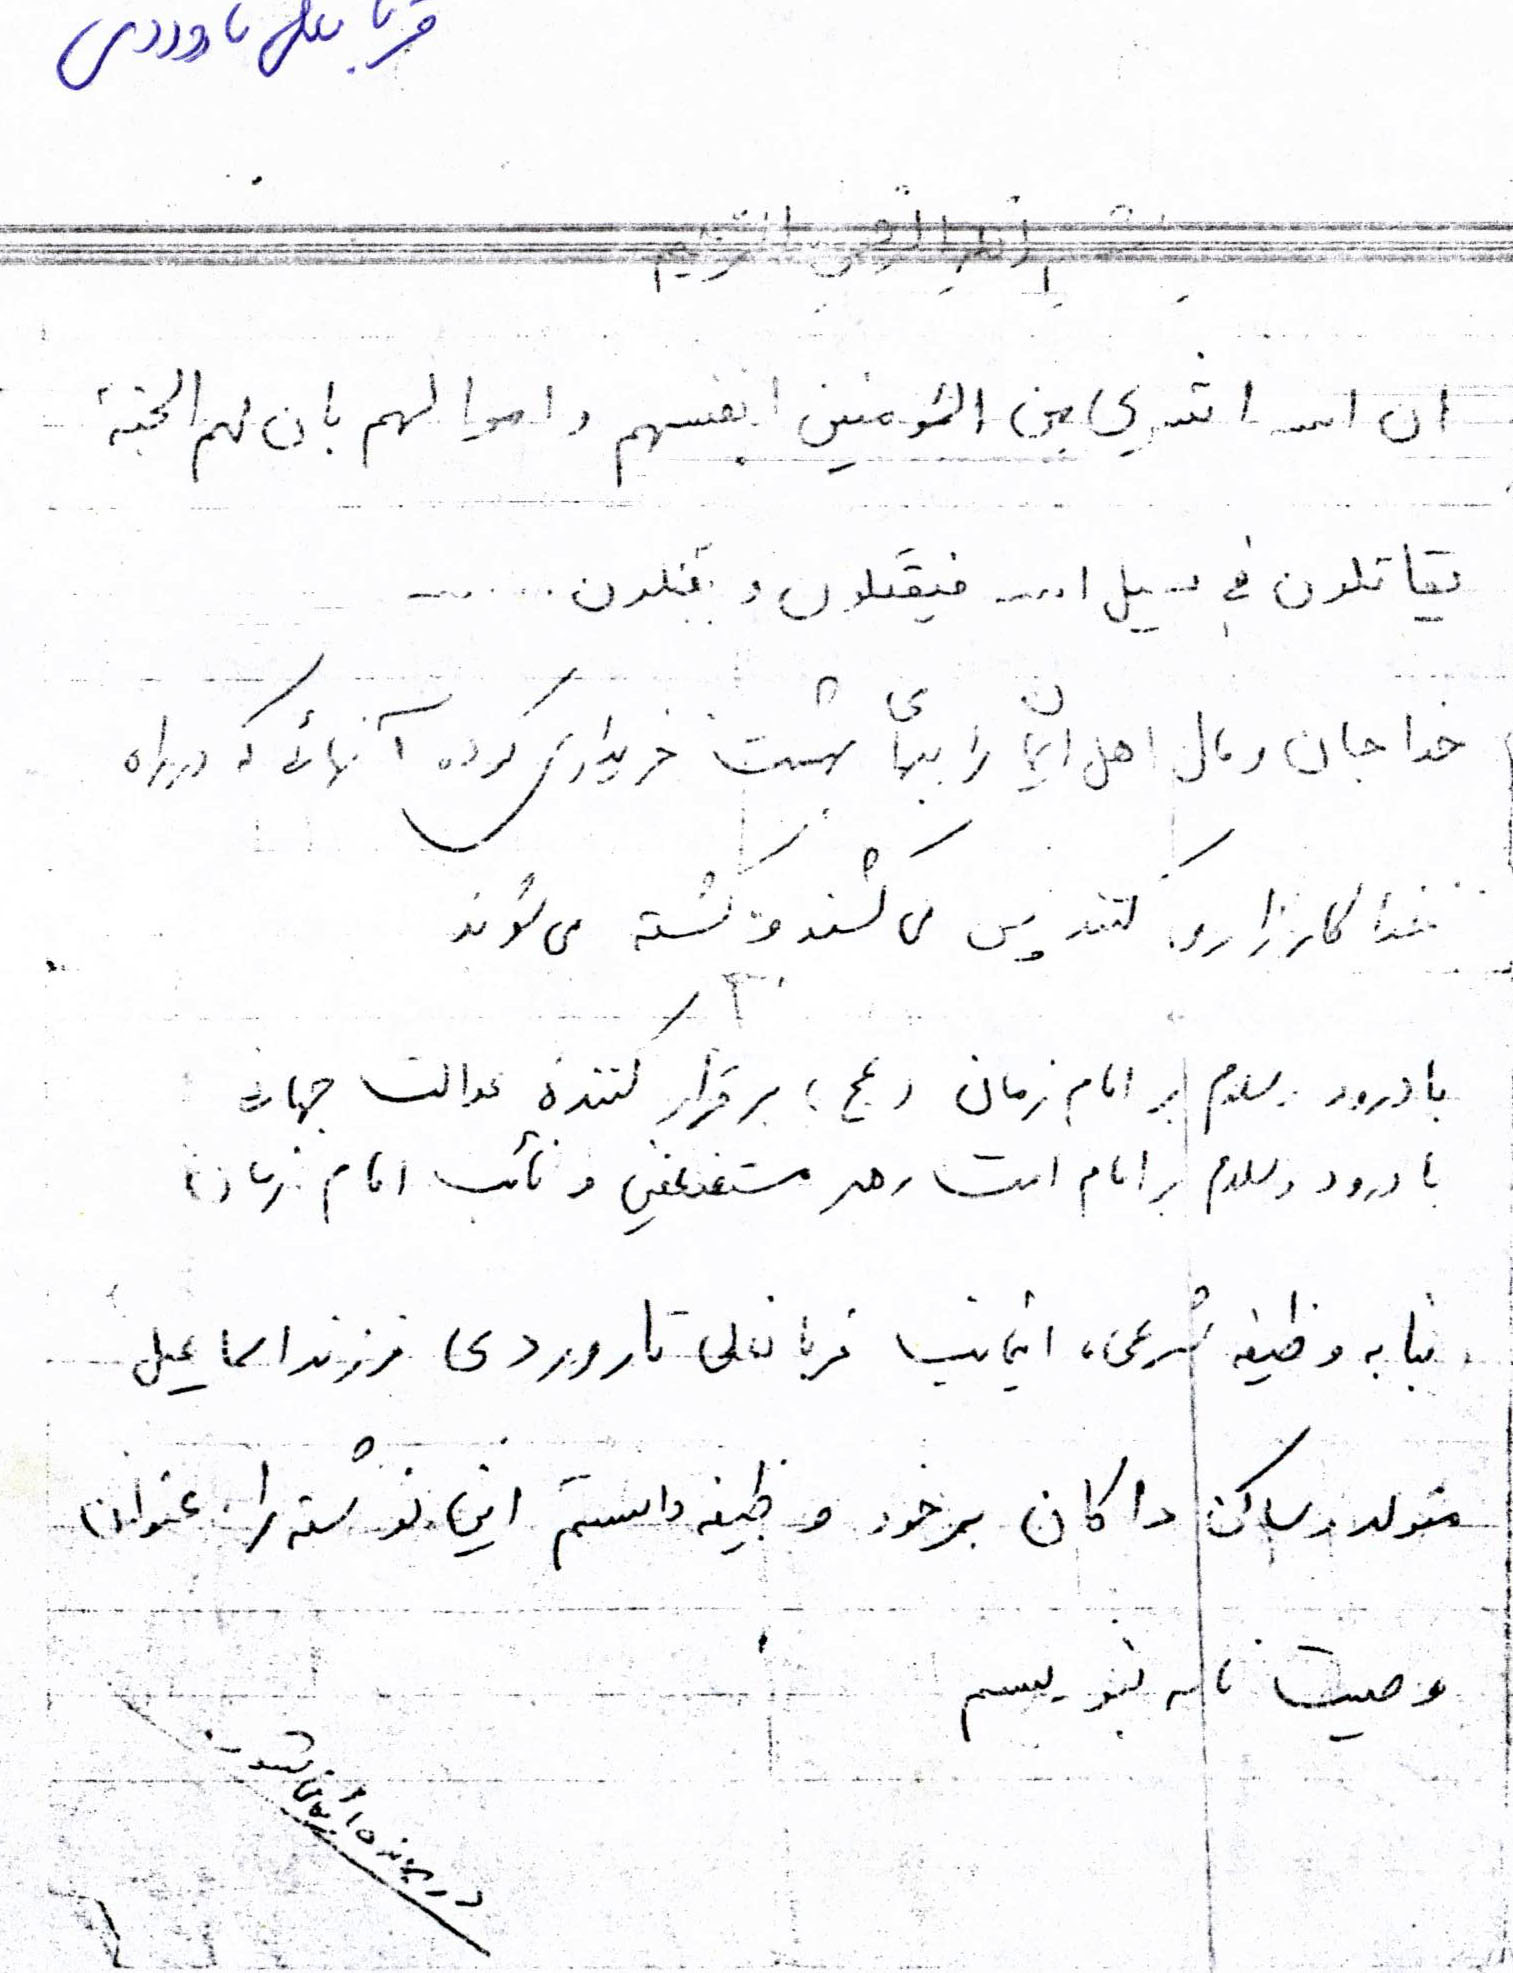 قربانعلی تاروردی
بسم الله الرحمن الرحیم
ان الله اشتری من المؤمنین انفسهم و اموالهم بان لهم الجنة
یقاتلون فی سبیل الله فیقتلون و یقتلون ......
خدا جان و مال اهل ایمان را ببهای بهشت خریداری کرده آنهائی که در راه
خدا کارزار کنند پس می کشند و کشته می شوند
با درود و سلام بر امام زمان (عج) برقرار کننده عدالت جهانی
با درود و سلام بر امام امت رهبر مستضعفین و نائب امام زمان
بنا به وظیفه شرعی، اینجانب قربانعلی تاروردی فرزند اسماعیل
متولد و ساکن داکان بر خود وظیفه دانستم این نوشته را عنوان
وصیت نامه بنویسم
در پرونده بایگانی شود